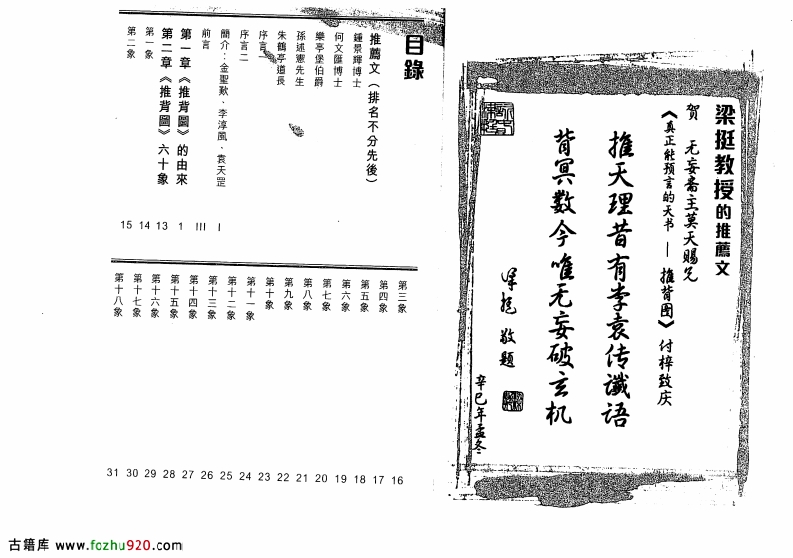 梁挺教授的推薦文
贺 无妄斋主莫天赐兄
《真正能预言的天书——推背图》付梓致庆
推天理昔有李袁传谶语
背冥数今唯无妄破玄机
梁挺 敬题
辛巳年孟冬
目錄
推薦文（排名不分先後）
鍾景輝博士
何文匯博士
樂亭堡伯爵
孫述憲先生
朱鶴亭道長
序言一
序言二 I
前言 III
簡介：金聖歎、李淳風、袁天罡
第一章《推背圖》的由來 1
第二章《推背圖》六十象 13
第一象 14
第二象 15
第三象 16
第四象 17
第五象 18
第六象 19
第七象 20
第八象 21
第九象 22
第十象 23
第十一象 24
第十二象 25
第十三象 26
第十四象 27
第十五象 28
第十六象 29
第十七象 30
第十八象 31
古籍库 www.fozhu920.com